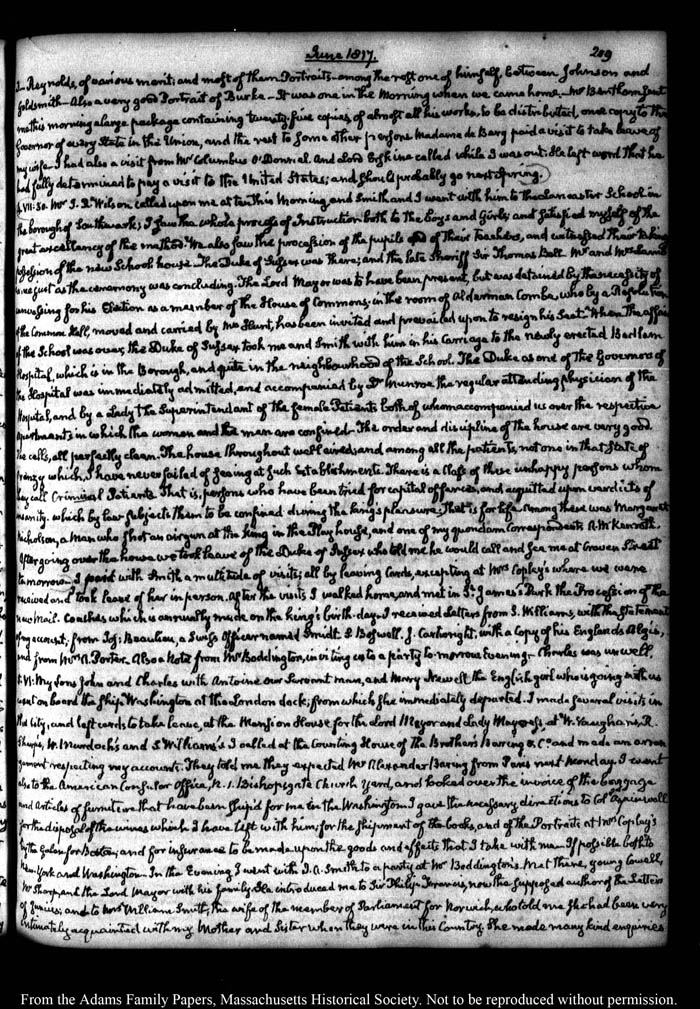 June 1817. 209
Reynolds, of various merit; and most of them Portraits—among the rest one of himself, between Johnson and
Goldsmith—Also a very good Portrait of Burke—It was one in the Morning when we came home—Mr Bentham sent
me this morning a large package containing twenty-five copies, of almost all his works, to be distributed, one copy to the
Governor of every State in the Union, and the rest to some other persons Madame de Berg paid a visit to take leave of
my wife. I had also a visit from Mr Columbus O'Donnel. And Lord Erskine called while I was out: He left word that he
had fully determined to pay a visit to the United States; and should probably go next Spring.
4. VII:30. Mr J. R. Wilson called upon me at ten this Morning and Smith and I went with him to the Lancaster School in
the borough of Southwark; I saw the whole process of Instruction both to the boys and Girls; and satisfied myself of the
great excellency of the method. We also saw the procession of the pupils of their Teachers, and witnessed their taking
possession of the new School house. The Duke of Sussex was there; and the late Sheriff Sir Thomas Bell. Mr and Mrs
just as the ceremony was concluding. The Lord Mayor was to have been present, but was detained by the necessity of
canvassing for his Election as a member of the House of Commons; in the room of Alderman Combe, who by a Resolution
of the Common Hall, moved and carried by Mr Hunt, has been invited and prevailed upon to resign his Seat. When the affair
of the School was over, the Duke of Sussex took me and Smith with him in his Carriage to the newly erected Bedlam
Hospital, which is in the Borough, and quite in the neighbourhood of the School. The Duke as one of the Governors of
the Hospital was immediately admitted, and accompanied by Dr Munroe the regular attending physician of the
Hospital, and by a Lady the Superintendant of the female Patients both of whom accompanied us over the respective
apartments in which the women and the men are confined. The order and discipline of the house are very good.
The cells, all perfectly clean. The house throughout well aired; and among all the patients, not one in that State of
frenzy which I have never failed of seeing at such Establishments. There is a Class of these unhappy persons whom
they call Criminal Patients. That is, persons who have been tried for capital offences, and acquitted upon verdicts of
insanity. which by law subjects them to be confined during the king's pleasure; that is for life. Among these was Margaret
Nicholson, a Man who shot an airgun at the king in the Play house, and one of my quondam correspondents R. M.
After going over the house we took leave of the Duke of Sussex who told me he would call and see me at Craven Street
to morrow. I paid with Smith a multitude of visits; all by leaving Cards, excepting at Mrs Copley's where we were
received and took leave of her in person. After the visits I walked home, and met in St. James's Park the Procession of the
new Mail Coaches which is annually made on the king's birth-day. I received Letters from S. Williams, with the Statement
of my account; from Jos: Beaulieu, a Swiss Officer named Smidt. J. Boswell. J. Cartwright, with a Copy of his Englands Ægis,
and from Mrs R. Porter. Also a Note from Mr Boddington, inviting us to a party to-morrow Evening. Charles was unwell.
5. VI: My Sons John and Charles with Antoine our Servant man, and Mary Newell the English girl who is going with us
went on board the Ship Washington at the London dock; from which she immediately departed. I made several visits in
the City, and left cards to take leave, at the Mansion House for the Lord Mayor and Lady Mayoress, at W. Vaughan's. R.
W. Murdoch's and S. Williams's I called at the Counting House of the Brothers Baring & Co. and made an arran-
gement respecting my accounts. They told me they expected Mr Alexander Baring from Paris next Monday. I went
also to the American Consular Office, N. 1. Bishopsgate Church Yard, and looked over the invoice of the baggage
and Articles of furniture that have been shipped for me in the Washington. I gave the necessary directions to Coll Aspinwall
for the disposal of the wines which I have left with him; for the shipment of the books, and of the Portraits at Mrs Copley's
by the Galen for Boston; and for insurance to be made upon the goods and effects that I take with me. If possible both to
New York and Washington. In the Evening I went with J. A. Smith to a party at Mr Boddington's. Met there, young Lowell,
Mr Sharp, and the Lord Mayor with his family. He introduced me to Sir Philip Francis, now the supposed author of the Letters
of Junius; and to Mrs William Smith, the wife of the member of Parliament for Norwich, who told me she had been very
intimately acquainted with my Mother and Sister when they were in this Country. She made many kind enquiries
From the Adams Family Papers, Massachusetts Historical Society. Not to be reproduced without permission.